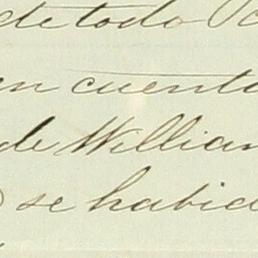 de todo
en cuenta
de William
se habid